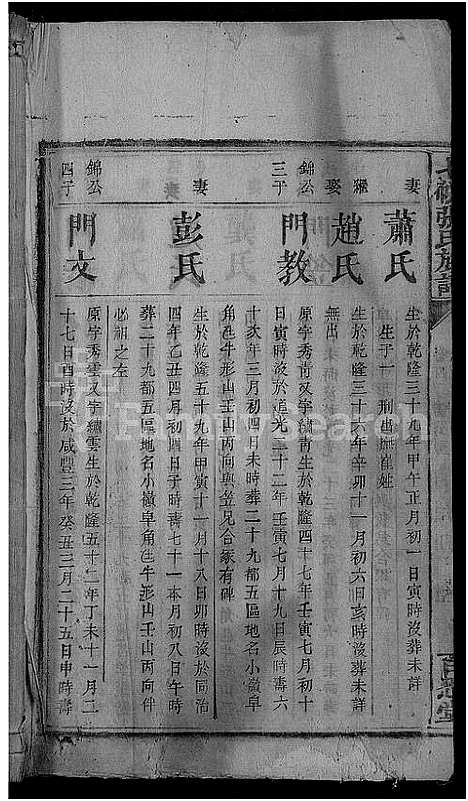 妻
蕭氏
生於乾隆三十九年甲午正月初一日寅時沒葬未詳
生子一
繼娶
趙氏
生於乾隆三十六年辛卯十一月初六日亥時沒葬未詳
無出
錦公三子
門教
原字秀青又字續青生於乾隆四十七年壬寅七月初十
日寅時沒於道光二十二年壬寅七月十九日辰時六
十亥年三月初四未時葬二十九都五區地名小嶺阜
角色牛形山壬山丙向與笠兄合冢有碑
妻
彭氏
生於乾隆五十九年甲寅十一月十八日卯時沒於同治
四年乙丑四月初四日子時壽七十一本月初八日午時
葬二十九都五區地名小嶺阜角色牛形山壬山丙向伴
必祖之左
錦公四子
門文
原字秀雲又字續雲生於乾隆五十二年丁未十一月二
十七日酉時沒於咸豐三年癸丑三月二十五日申時壽
張氏族譜
百忍堂
FamilySearch